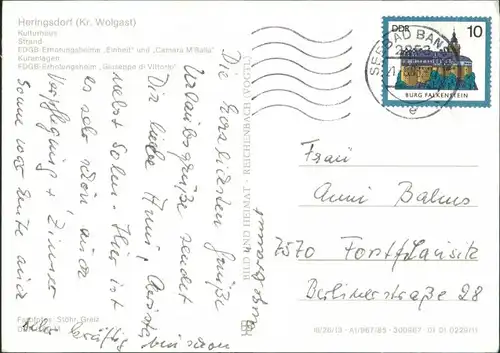 Heringsdorf (Kr. Wolgast)
Kulturhaus
Strand
FDGB-Erholungsheime „Einheit" und „Camara M'Balia"
Kuranlagen
FDGB-Erholungsheim „Giuseppe di Vittorio"
Die herzlichsten Grüße
Urlaubsgrüße sendet
Dir liebe Anni, Christa
nebst Sohn. Hier ist
es sehr schön, auch
Verpflegung + Zimmer
Sonne war heute auch
schon
kräftig
bin schon
Fotofotos: Stöhr, Greiz
BILD UND HEIMAT · REICHENBACH (VOGTL)
SEEBAD BANSIN
2253
DDR
10
BURG FALKENSTEIN
Frau
Anni Balnus
7570 Forst/Lausitz
Berlinerstraße 28
III/26/13 A1/967/85 300667 01 01 0229/11